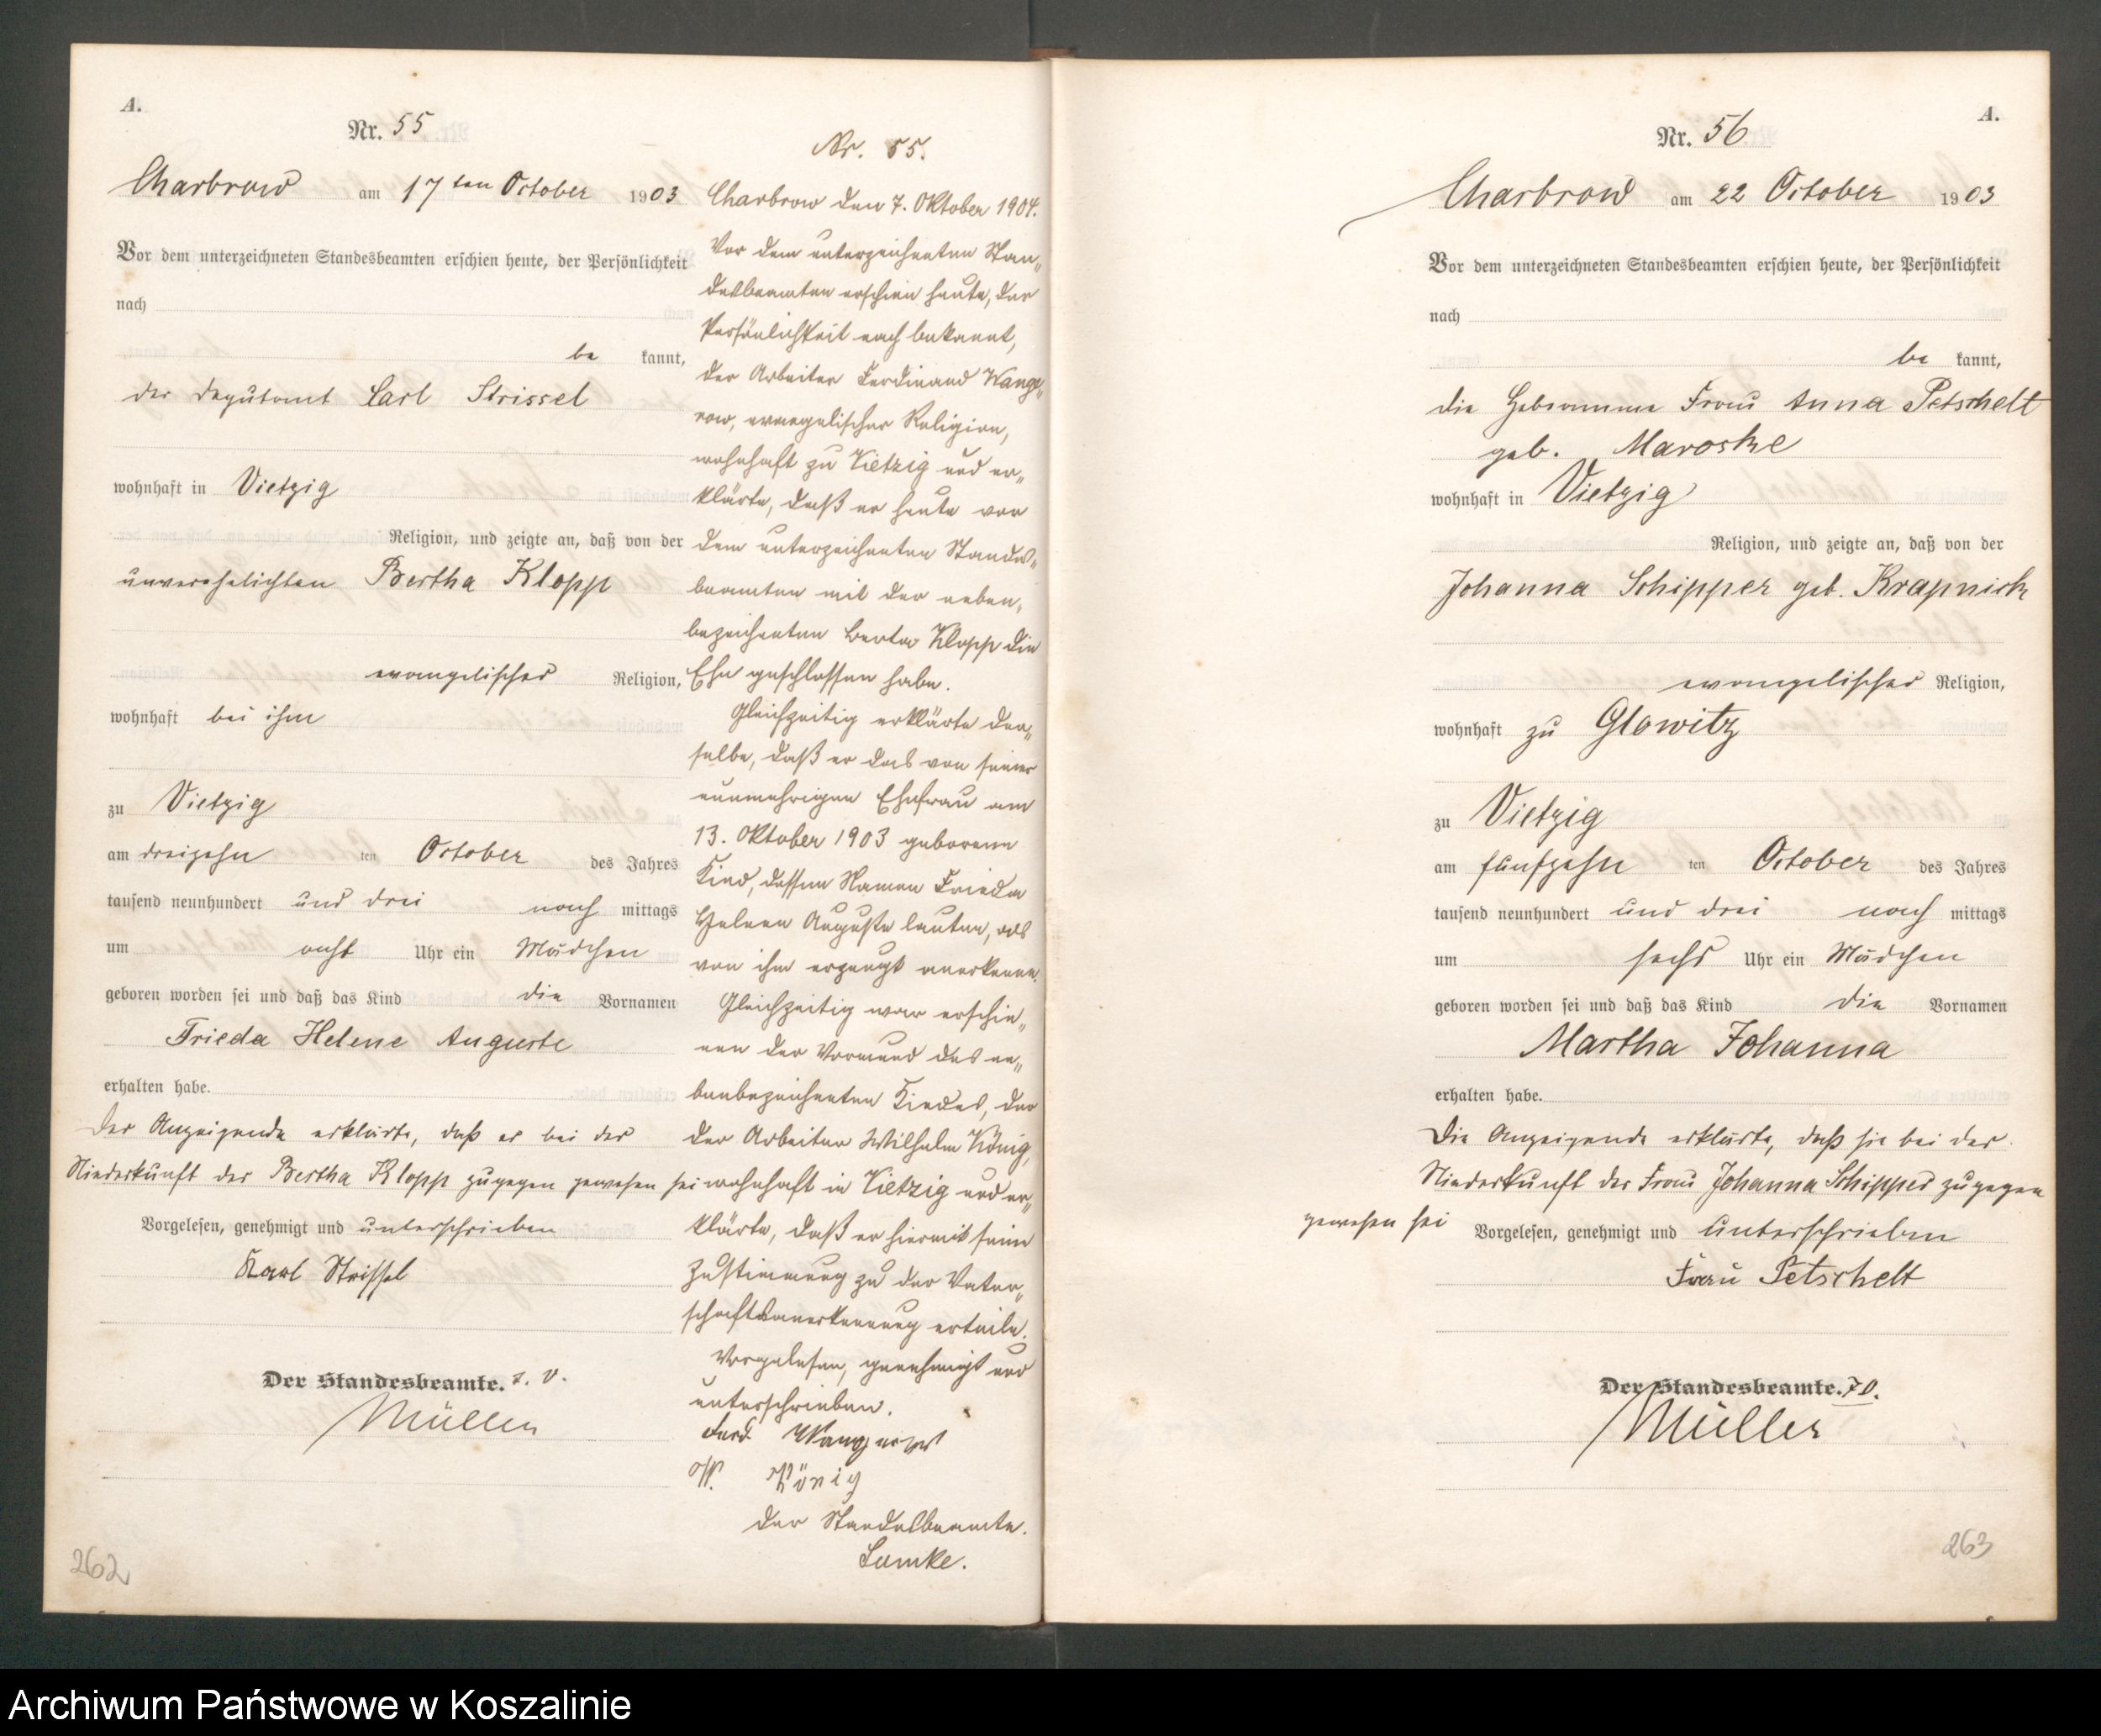 A.
Nr. 55
Charbrow am 17ten October 1903
Vor dem unterzeichneten Standesbeamten erschien heute, der Persönlichkeit
nach
be kannt,
der Deputant Carl Strissel
wohnhaft in Vietzig
Religion, und zeigte an, daß von der
unverehelichten Bertha Klopp
evangelischer Religion,
wohnhaft bei ihm
zu Vietzig
am dreizehn ten October des Jahres
tausend neunhundert und drei nach mittags
um acht Uhr ein Mädchen
geboren worden sei und daß das Kind die Vornamen
Frieda Helene Auguste
erhalten habe.
Der Anzeigende erklärte, daß er bei der
Niederkunft der Bertha Klopp zugegen gewesen sei
Vorgelesen, genehmigt und unterschrieben
Karl Strissel
Der Standesbeamte. I. V.
Müller
262
Nr. 55.
Charbrow den 7. Oktober 1904.
Vor dem unterzeichneten Stan„
desbeamten erschien heute, der
Persönlichkeit nach bekannt,
der Arbeiter Ferdinand Wange„
row, evangelischer Religion,
wohnhaft zu Vietzig und er„
klärte, daß er heute vor
dem unterzeichneten Standes„
beamten mit der neben„
bezeichneten Berta Klopp die
Ehe geschlossen habe.
Gleichzeitig erklärte der„
selbe, daß er das von seiner
nunmehrigen Ehefrau am
13. Oktober 1903 geborene
Kind, dessen Namen Frieda
Helene Auguste lauten, als
von ihm erzeugt anerkenne.
Gleichzeitig war erschie„
nen der Vormund des ne„
benbezeichneten Kindes, der
der Arbeiter Wilhelm König,
wohnhaft in Vietzig und er„
klärte, daß er hiermit seine
Zustimmung zu der Vater„
schaftsanerkennung erteile.
Vorgelesen, genehmigt und
unterschrieben.
Ferd. Wangerow
W. König
Der Standesbeamte.
Lemke.
A.
Nr. 56
Charbrow am 22 October 1903
Vor dem unterzeichneten Standesbeamten erschien heute, der Persönlichkeit
nach
be kannt,
die Hebamme Frau Anna Petschelt
geb. Maroske
wohnhaft in Vietzig
Religion, und zeigte an, daß von der
Johanna Schipper geb. Krapnick
evangelischer Religion,
wohnhaft zu Glowitz
zu Vietzig
am fünfzehn ten October des Jahres
tausend neunhundert und drei nach mittags
um sechs Uhr ein Mädchen
geboren worden sei und daß das Kind die Vornamen
Martha Johanna
erhalten habe.
Die Anzeigende erklärte, daß sie bei der
Niederkunft der Frau Johanna Schipper zugegen
gewesen sei
Vorgelesen, genehmigt und unterschrieben
Frau Petschelt
Der Standesbeamte. I. V.
Müller
263
Archiwum Państwowe w Koszalinie